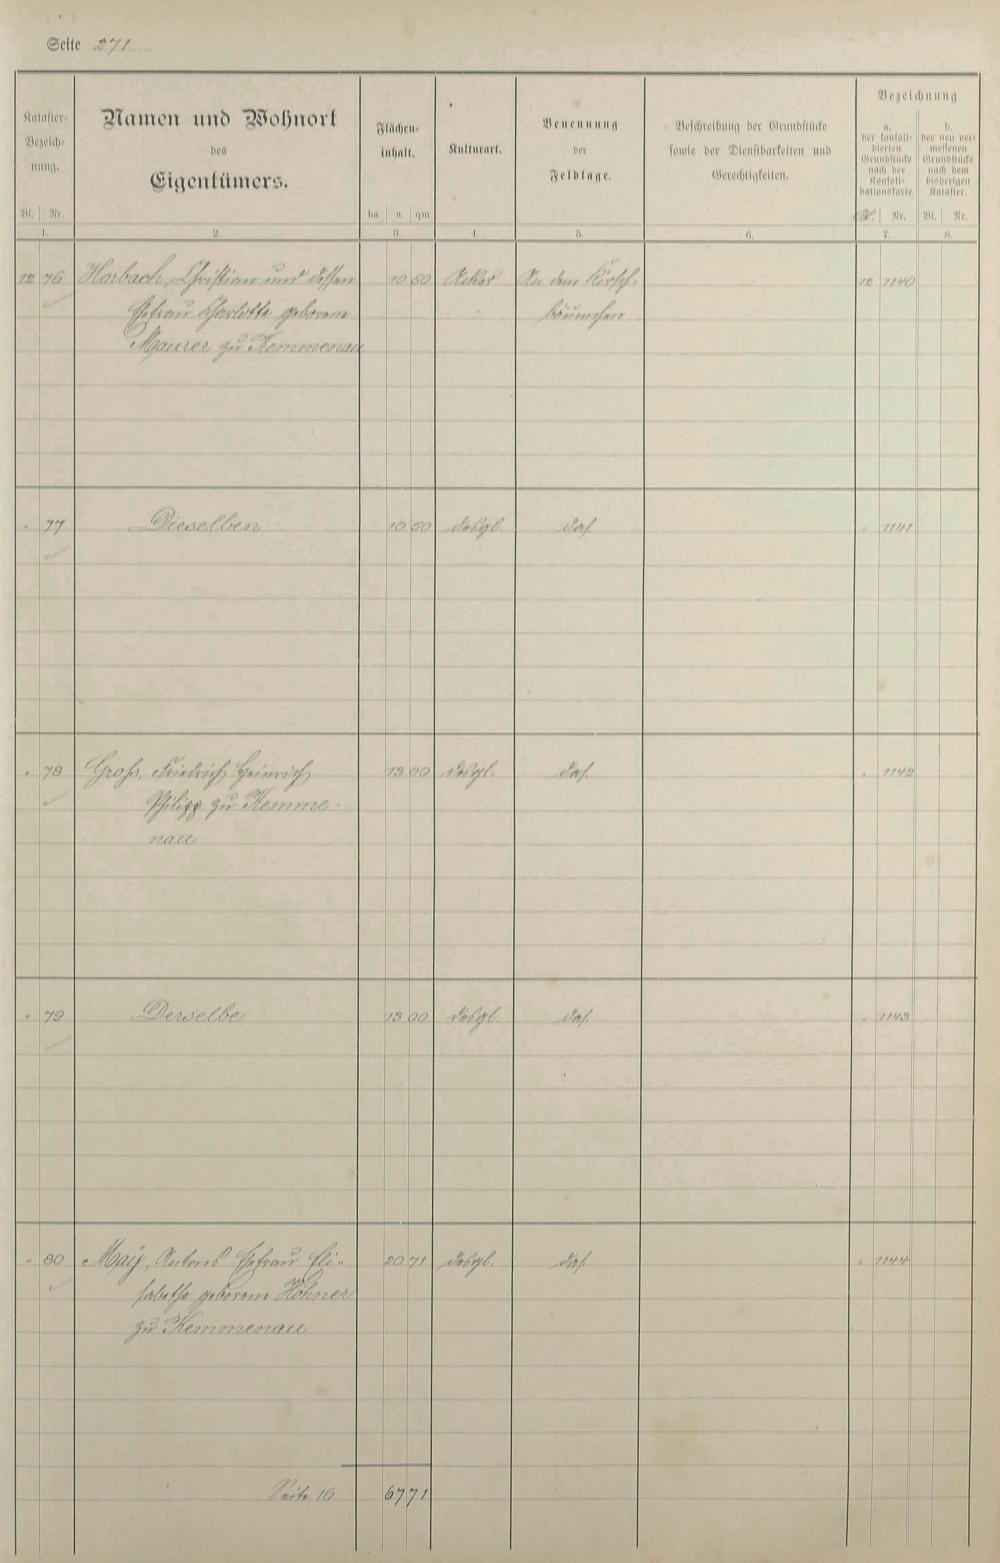 Seite 271
Kataster-
Bezeich-
nung.
Bl. Nr.
1.
Namen und Wohnort
des
Eigentümers.
2.
Flächen-
inhalt.
ha a qm
3.
Kulturart.
4.
Benennung
der
Feldlage.
5.
Beschreibung der Grundstücke
sowie der Dienstbarkeiten und
Gerechtigkeiten.
6.
Bezeichnung
a.
der konsoli-
dierten
Grundstücke
nach der
Konsoli-
dationskarte.
Bl. Nr.
7.
b.
der neu ver-
messenen
Grundstücke
nach dem
bisherigen
Kataster.
Bl. Nr.
8.
12 76 Harbach, Christian und dessen 10 50 Acker An dem Kirsch- 12 1140
Ehefrau Charlotte geborene bäumchen
Maurer zu Kemmenau
" 77 Dieselben 10 50 desgl. das. " 1141
" 78 Groß, Friedrich Heinrich 13 00 desgl. das. " 1142
Philipp zu Kemme-
nau
" 79 Derselbe 13 00 desgl. das. " 1143
" 80 Maÿ, Antons Ehefrau Eli- 20 71 desgl. das. " 1144
sabetha geborene Höhner
zu Kemmenau
Seite 16 67 71